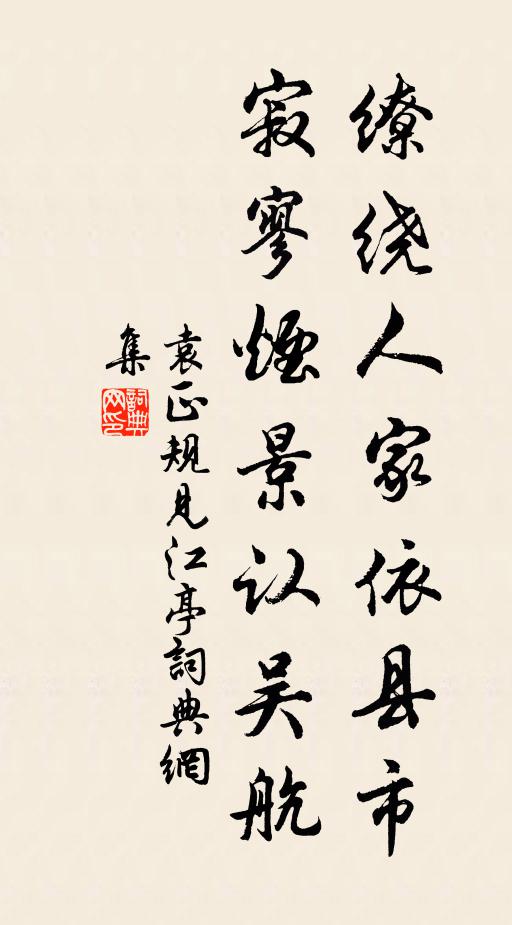 缭绕人家依县市
寂寥烟景认吴航
袁正规见江亭詞典網
集
詞典
网印